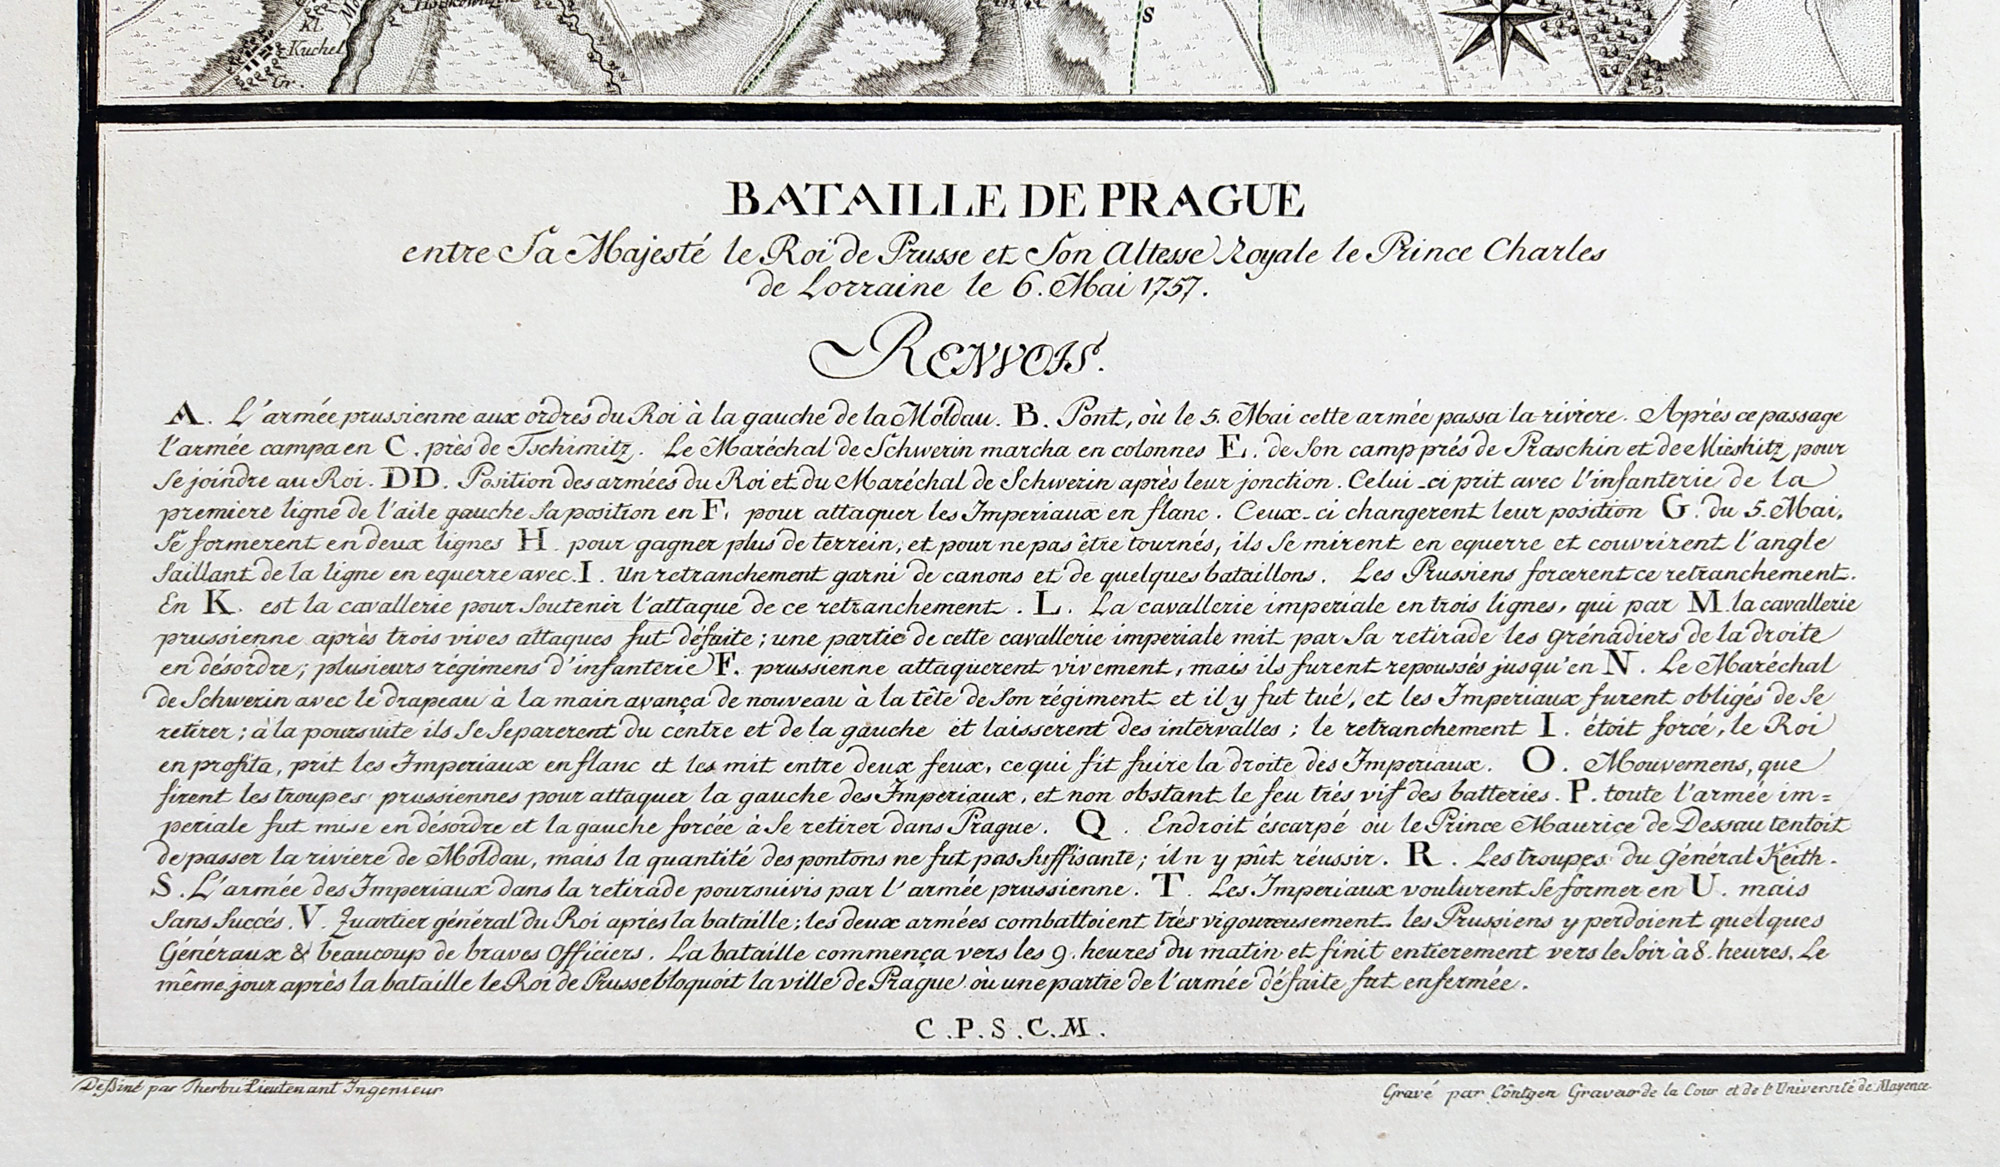 Kl.
Kuchel
Gr.
S
BATAILLE DE PRAGUE
entre Sa Majesté le Roi de Prusse et Son Altesse Royale le Prince Charles
de Lorraine le 6. Mai 1757.
RENVOIS.
A. L'armée prussienne aux ordres du Roi à la gauche de la Moldau. B. Pont, où le 5. Mai cette armée passa la riviere. Après ce passage
l'armée campa en C. près de Tschimitz. Le Maréchal de Schwerin marcha en colonnes E. de Son camp prés de Praschin et de Mieshitz pour
Se joindre au Roi. DD. Position des armées du Roi et du Maréchal de Schwerin après leur jonction. Celui-ci prit avec l'infanterie de la
premiere ligne de l'aile gauche Sa position en F. pour attaquer les Imperiaux en flanc. Ceux-ci changerent leur position G. du 5. Mai,
Se formerent en deux lignes H. pour gagner plus de terrein, et pour ne pas être tournés, ils Se mirent en equerre et couvrirent l'angle
Saillant de la ligne en equerre avec I. Un retranchement garni de canons et de quelques bataillons. Les Prussiens forcerent ce retranchement.
En K. est la cavallerie pour Soutenir l'attaque de ce retranchement. L. La cavallerie imperiale en trois lignes, qui par M. la cavallerie
prussienne après trois vives attaques fut défaite; une partie de cette cavallerie imperiale mit par Sa retirade les grénadiers de la droite
en désordre; plusieurs régimens d'infanterie F. prussienne attaquerent vivement, mais ils furent repoussés jusqu'en N. Le Maréchal
de Schwerin avec le drapeau à la main avança de nouveau à la tête de Son régiment et il y fut tué, et les Imperiaux furent obligés de Se
retirer; à la poursuite ils Se Separerent du centre et de la gauche et laisserent des intervalles; le retranchement I. étoit forcé, le Roi
en profita, prit les Imperiaux en flanc et les mit entre deux feux, ce qui fit fuire la droite des Imperiaux. O. Mouvemens, que
firent les troupes prussiennes pour attaquer la gauche des Imperiaux, et non obstant le feu trés vif des batteries. P. toute l'armée im=
periale fut mise en désordre et la gauche forcée à Se retirer dans Prague. Q. Endroit éscarpé où le Prince Maurice de Dessau tentoit
de passer la riviere de Moldau, mais la quantité des pontons ne fut pas Suffisante; il n y pût réussir. R. Les troupes du Général Keith.
S. L'armée des Imperiaux dans la retirade poursuivis par l'armée prussienne. T. Les Imperiaux voulurent Se former en U. mais
Sans Succés. V. Quartier général du Roi après la bataille; les deux armées combattoient trés vigoureusement. les Prussiens y perdoient quelques
Généraux & beaucoup de braves Officiers. La bataille commença vers les 9. heures du matin et finit entierement vers le Soir à 8. heures. Le
même jour après la bataille le Roi de Prusse bloquoit la ville de Prague où une partie de l'armée défaite fut enfermée.
C.P.S.C.M.
Deßiné par Therbu Lieutenant Ingenieur
Gravé par Cöntgen Graveur de la Cour et de l'Université de Mayence